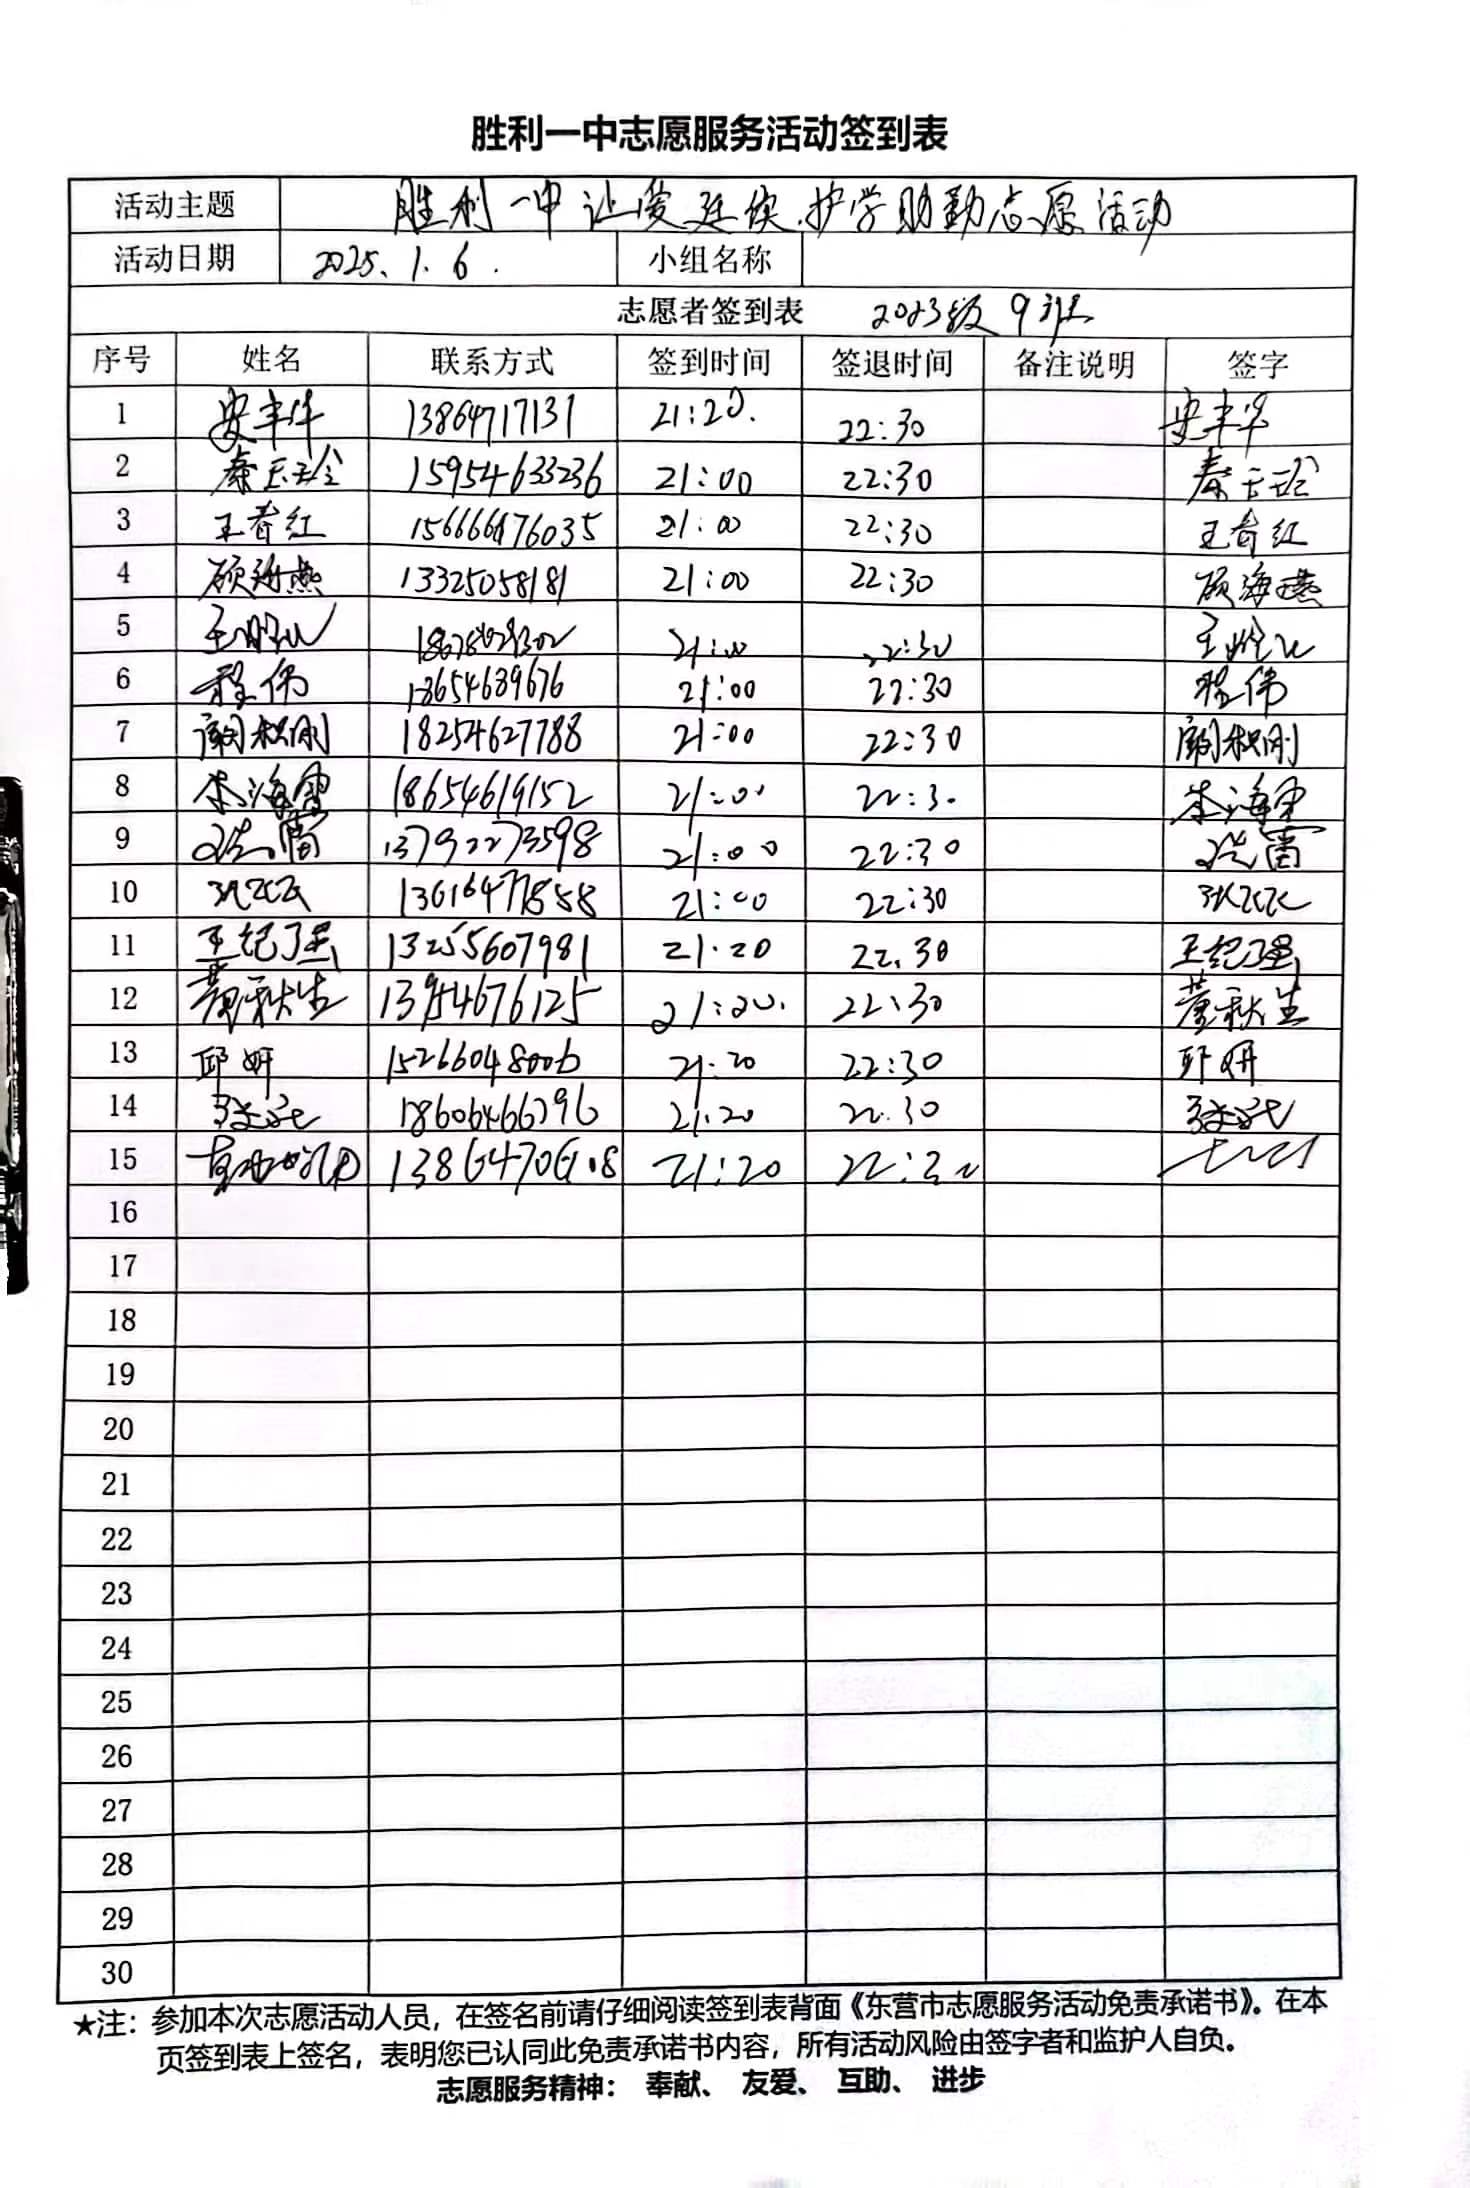 胜利一中志愿服务活动签到表
活动主题 胜利一中让爱延续.护学助勤志愿活动
活动日期 2025.1.6. 小组名称
志愿者签到表 2023级9班
序号 姓名 联系方式 签到时间 签退时间 备注说明 签字
1 安丰华 13864717131 21:20. 22:30 安丰华
2 秦玉玲 15954633236 21:00 22:30 秦玉玲
3 王春红 21:00 22:30 王春红
4 顾海燕 13325058181 21:00 22:30 顾海燕
5 21:00 22:30
6 程伟 13654639676 21:00 22:30 程伟
7 18254627788 21:00 22:30
8 李海雷 18654619152 21:00 22:30 李海雷
9 13792273598 21:00 22:30
10 21:00 22:30
11 王纪强 13255607981 21:20 22.30 王纪强
12 董秋生 13954676125 21:20. 22:30 董秋生
13 邱妍 15266048006 21:20 22:30 邱妍
14 18606466796 21.20 22.30
15 21:20 22:30
16
17
18
19
20
21
22
23
24
25
26
27
28
29
30
★注：参加本次志愿活动人员，在签名前请仔细阅读签到表背面《东营市志愿服务活动免责承诺书》。在本
页签到表上签名，表明您已认同此免责承诺书内容，所有活动风险由签字者和监护人自负。
志愿服务精神： 奉献、 友爱、 互助、 进步